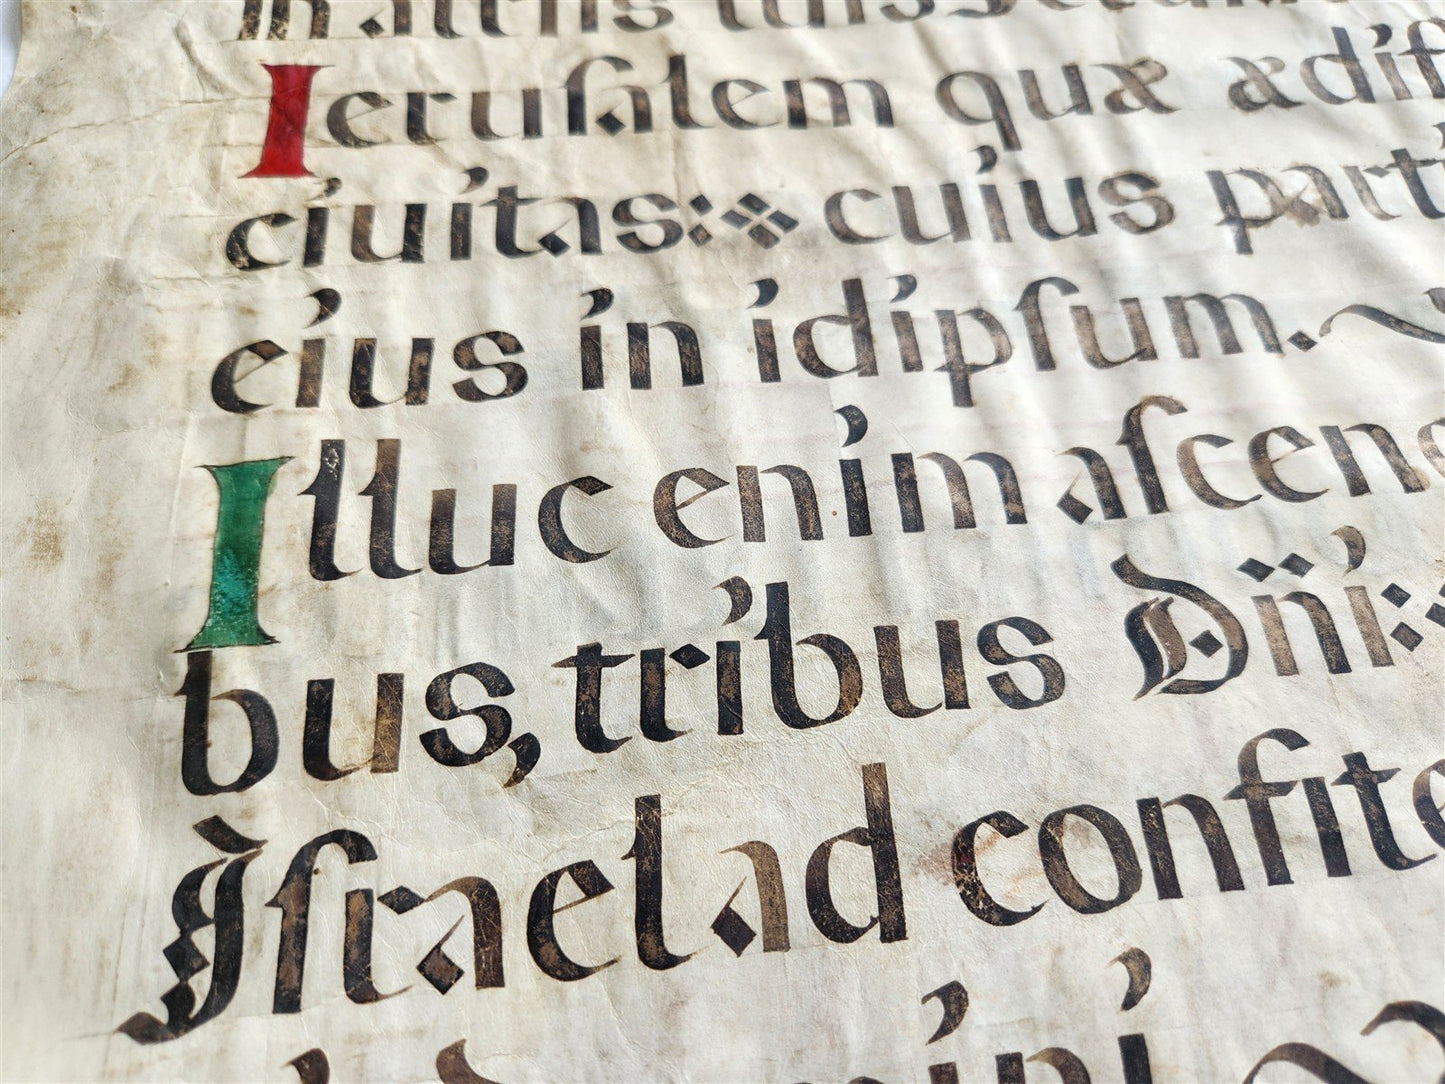 in atriis tuis
Ieruſalem quæ ædif
ciuitas: cuius parti
eius in idipſum.
Illuc enim aſcen
bus, tribus Dn̄i:
Iſrael ad confite